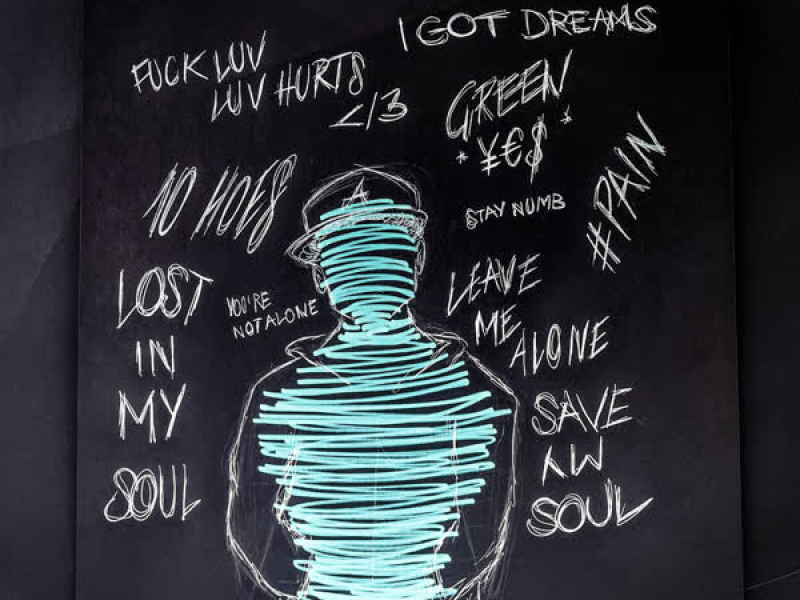 I GOT DREAMS
FUCK LUV
LUV HURTS
</3
GREEN
* ¥€$ *
#PAIN
HOES
STAY NUMB
A
LOST
IN
MY
SOUL
YOU'RE
NOT ALONE
LEAVE
ME
ALONE
SAVE
SOUL